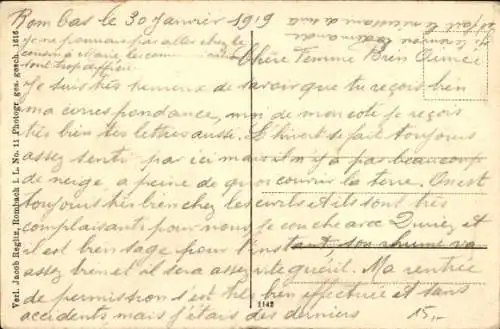 Rombas le 30 Janvier 1919
Je ne pourrais pas aller chez le
cousin à Marie les
sont trop difficiles
Chère Femme Bien Aimée
Je suis très heureux de savoir que tu reçois bien
ma correspondance, moi de mon coté je reçois
très bien tes lettres aussi. L'hivert se fait toujours
assez sentir par ici mais il n'y a pas beaucoup
de neige, a peine de quoi couvrir la terre. On est
toujours très bien chez les curés et ils sont très
complaisants pour nous je couche avec Quiriez et
il est bien sage pour l'instant son rhume va
assez bien et il sera assez vite guérit. Ma rentrée
de permission s'est très bien effectuée et sans
accidents mais j'étais des derniers
15,-
1142
Verl. Jacob Regitz, Rombach i. L. No. 11 Photogr. ges. gesch. 1616.